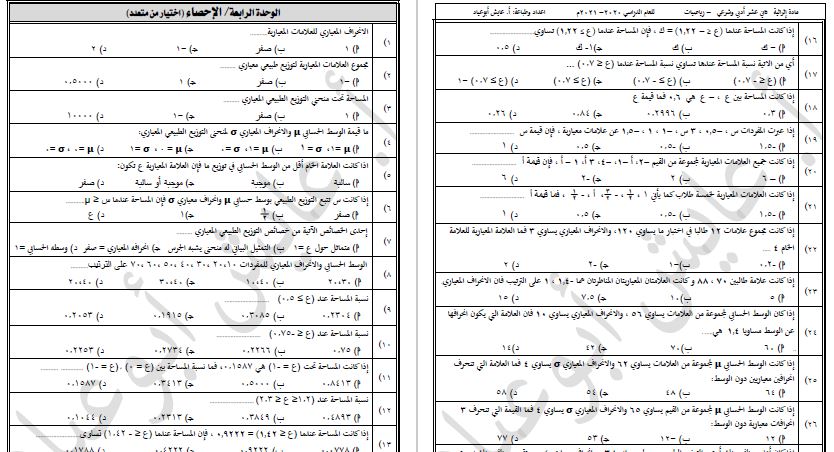 الوحدة الرابعة/ الإحصاء (اختيار من متعدد)
١) الانحراف المعياري للعلامات المعيارية...........
أ) ١ ب) صفر ج) -١ د) ٢
٢) مجموع العلامات المعيارية لتوزيع طبيعي معياري ..........
أ) -١ ب) صفر ج) ١ د) ٠.٥٠٠٠
٣) المساحة تحت منحنى التوزيع الطبيعي المعياري........
أ) ١ ب) صفر ج) -١ د) ١٠٠٠٠
٤) ما قيمة الوسط الحسابي μ والانحراف المعياري σ لمنحنى التوزيع الطبيعي المعياري:
٥) اذا كانت العلامة الخام أقل من الوسط الحسابي في توزيع ما فإن العلامة المعيارية ع تكون:
أ) سالبة ب) موجبة ج) موجبة أو سالبة د) صفر
٦) إذا كانت س تتبع التوزيع الطبيعي بوسط حسابي μ وانحراف معياري σ فإن المساحة عندما س ≥ μ
٧) إحدى الخصائص الآتية من خصائص التوزيع الطبيعي المعياري
أ) متماثل حول ع =١ ب) التمثيل البياني له منحنى يشبه الجرس ج) انحرافه المعياري = صفر د) وسطه الحسابي =١
٨) الوسط الحسابي والانحراف المعياري للمفردات ١٠، ٢٠، ٣٠، ٤٠، ٥٠، ٦٠، ٧٠ على الترتيب........
أ) ٢٠،٣٠ ب) ١٠،٤٠ ج) ٣٠،٤٠ د) ٢٠،٤٠
٩) نسبة المساحة عند (ع ≤ ٠.٥)..............
أ) ٠.٢٣٠٤ ب) ٠.٣٠٨٥ ج) ٠.١٩١٥ د) ٠.٢٠٥٣
١٠) نسبة المساحة عند (ع ≥ -٠.٧٥)..............
أ) ٠.٧٥ ب) ٠.٢٢٦٦ ج) ٠.٢٧٣٤ د) ٠.٢٢٥٣
١١) إذا كانت المساحة تحت (ع = -١) هي ٠.١٥٨٧، فما نسبة المساحة بين (ع = ٠) ، (ع = -١)
أ) ٠.٨٤١٣ ب) ٠.٥٠٠٠ ج) ٠.٣٤١٣ د) ٠.١٥٨٧
١٢)
أ) ٠.٤٨٩٣ ب) ٠.٣٨٤٩ ج) ٠.٢٣١٣ د) ٠.١٠٤٤
١٣) إذا كانت المساحة عندما (ع ≥ ١,٤٢) = ٠,٩٢٢٢ ، فإن المساحة عندما (ع ≤ -١.٤٢) تساوي.........
مادة إثرائية ثاني عشر أدبي وشرعي - رياضيات للعام الدراسي ٢٠٢٠-٢٠٢١م اعداد وطباعة: أ. عايش أبوعياد
١٦) إذا كانت المساحة عندما (ع ≤ -١,٢٢) = ك ، فإن المساحة عندما (ع ≥ ١,٢٢) تساوي.........
أ) -ك ب) ك ج) ١-ك د) ٠.٥
١٧) أي من الاتية نسبة المساحة عندها تساوي نسبة المساحة عندما (ع ≥ ٠.٧) ...
١٨) إذا كانت المساحة بين ع ، - ع هي ٠,٦ فما قيمة ع
أ) ٠.٣ ب) ٠.٢٩٩٦ ج) ٠.٨٤ د) ٠.٢٦
١٩) إذا عبرت المفردات س ، -٠,٥ ، ٣ س ، -١ ، ١ ، -١,٥ عن علامات معيارية، فإن قيمة س .........
أ) -١.٥ ب) -٠.٥ ج) ٠.٥ د) ١
٢٠)
أ) -٦ ب) ٢ ج) -٢ د) ٦
٢١)
أ) -١.٥ ب) -٠.٥ ج) ٠.٥ د) ١
٢٢) إذا كانت مجموع علامات ١٢ طالبا في اختبار ما يساوي ١٢٠، والانحراف المعياري يساوي ٣ فما العلامة المعيارية للعلامة
الخام ٤ ....
أ) -٠.٢ ب) ١ ج) -٢ د) ٢
٢٣) إذا كانت علامة طالبين ٧٠ ، ٨٨ و كانت العلامتان المعياريتان المناظرتان هما -١,٤ ، ١ على الترتيب فان الانحراف المعياري
أ) ٥ ب) ١٠ ج) ٧.٥ د) ١٥
٢٤) إذا كان الوسط الحسابي لمجموعة من العلامات يساوي ٥٦ ، والانحراف المعياري يساوي ١٠ فان العلامة التي يكون انحرافها
عن الوسط مساويا ١,٤ هي.....
أ) ٦٠ ب) ٧٠ ج) ٤٢ د) ١٤
٢٥) إذا كان الوسط الحسابي μ لمجموعة من العلامات يساوي ٦٢ والانحراف المعياري σ يساوي ٤ فما العلامة التي تنحرف
انحرافين معياريين دون الوسط:
أ) ٦٤ ب) ٤٨ ج) ٥٤ د) ٥٨
٢٦) إذا كان الوسط الحسابي μ لمجموعة من القيم يساوي ٦٥ والانحراف المعياري σ يساوي ٤ فما القيمة التي تنحرف ٣
انحرافات معيارية دون الوسط:
أ) ١٢ ب) -١٢ ج) ٥٣ د) ٧٧